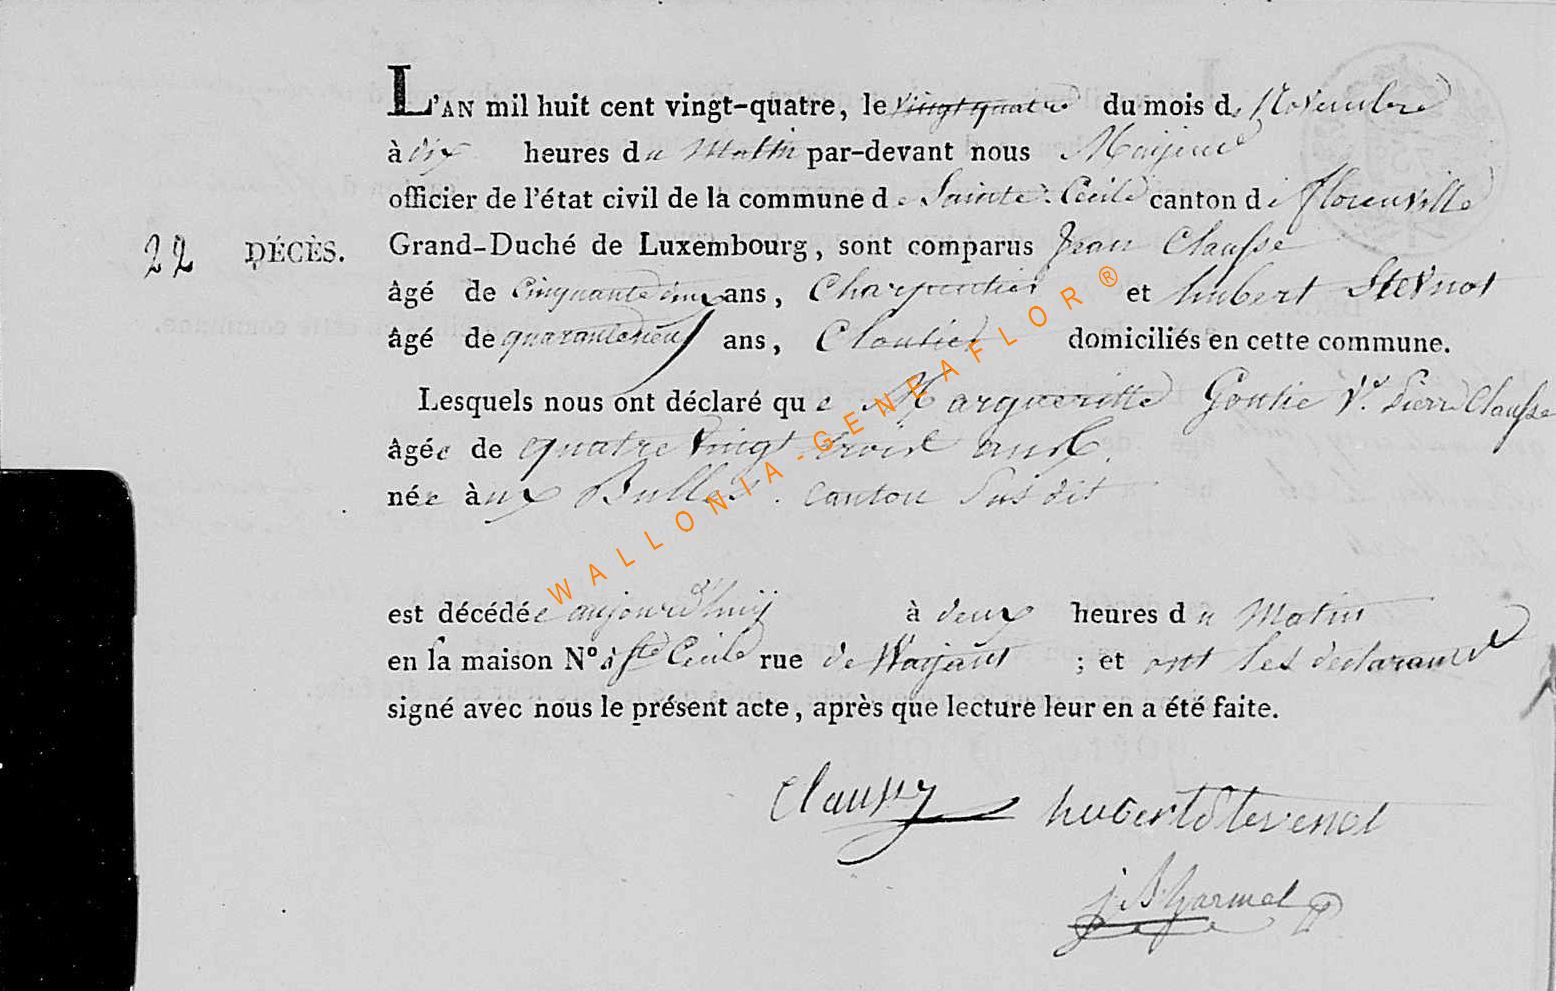 L'AN mil huit cent vingt-quatre, le vingt quatre du mois de Novembre
à dix heures du Matin par-devant nous
officier de l'état civil de la commune de Sainte-Cécile canton de florenville
22 DÉCÈS. Grand-Duché de Luxembourg, sont comparus Jean Clausse
âgé de ans, Charpentier et hubert Stevnot
âgé de quarante neuf ans, Cloutier domiciliés en cette commune.
Lesquels nous ont déclaré que Margueritte Goutie Ve. Pierre Clausse
âgée de quatre vingt trois ans
née aux Bulles. canton susdit
est décédée aujourd'huij à deux heures du Matin
en la maison N° à Ste Cécile rue de ; et ont les declarants
signé avec nous le présent acte, après que lecture leur en a été faite.
hubert Stevenot
WALLONIA-GENEAFLOR®